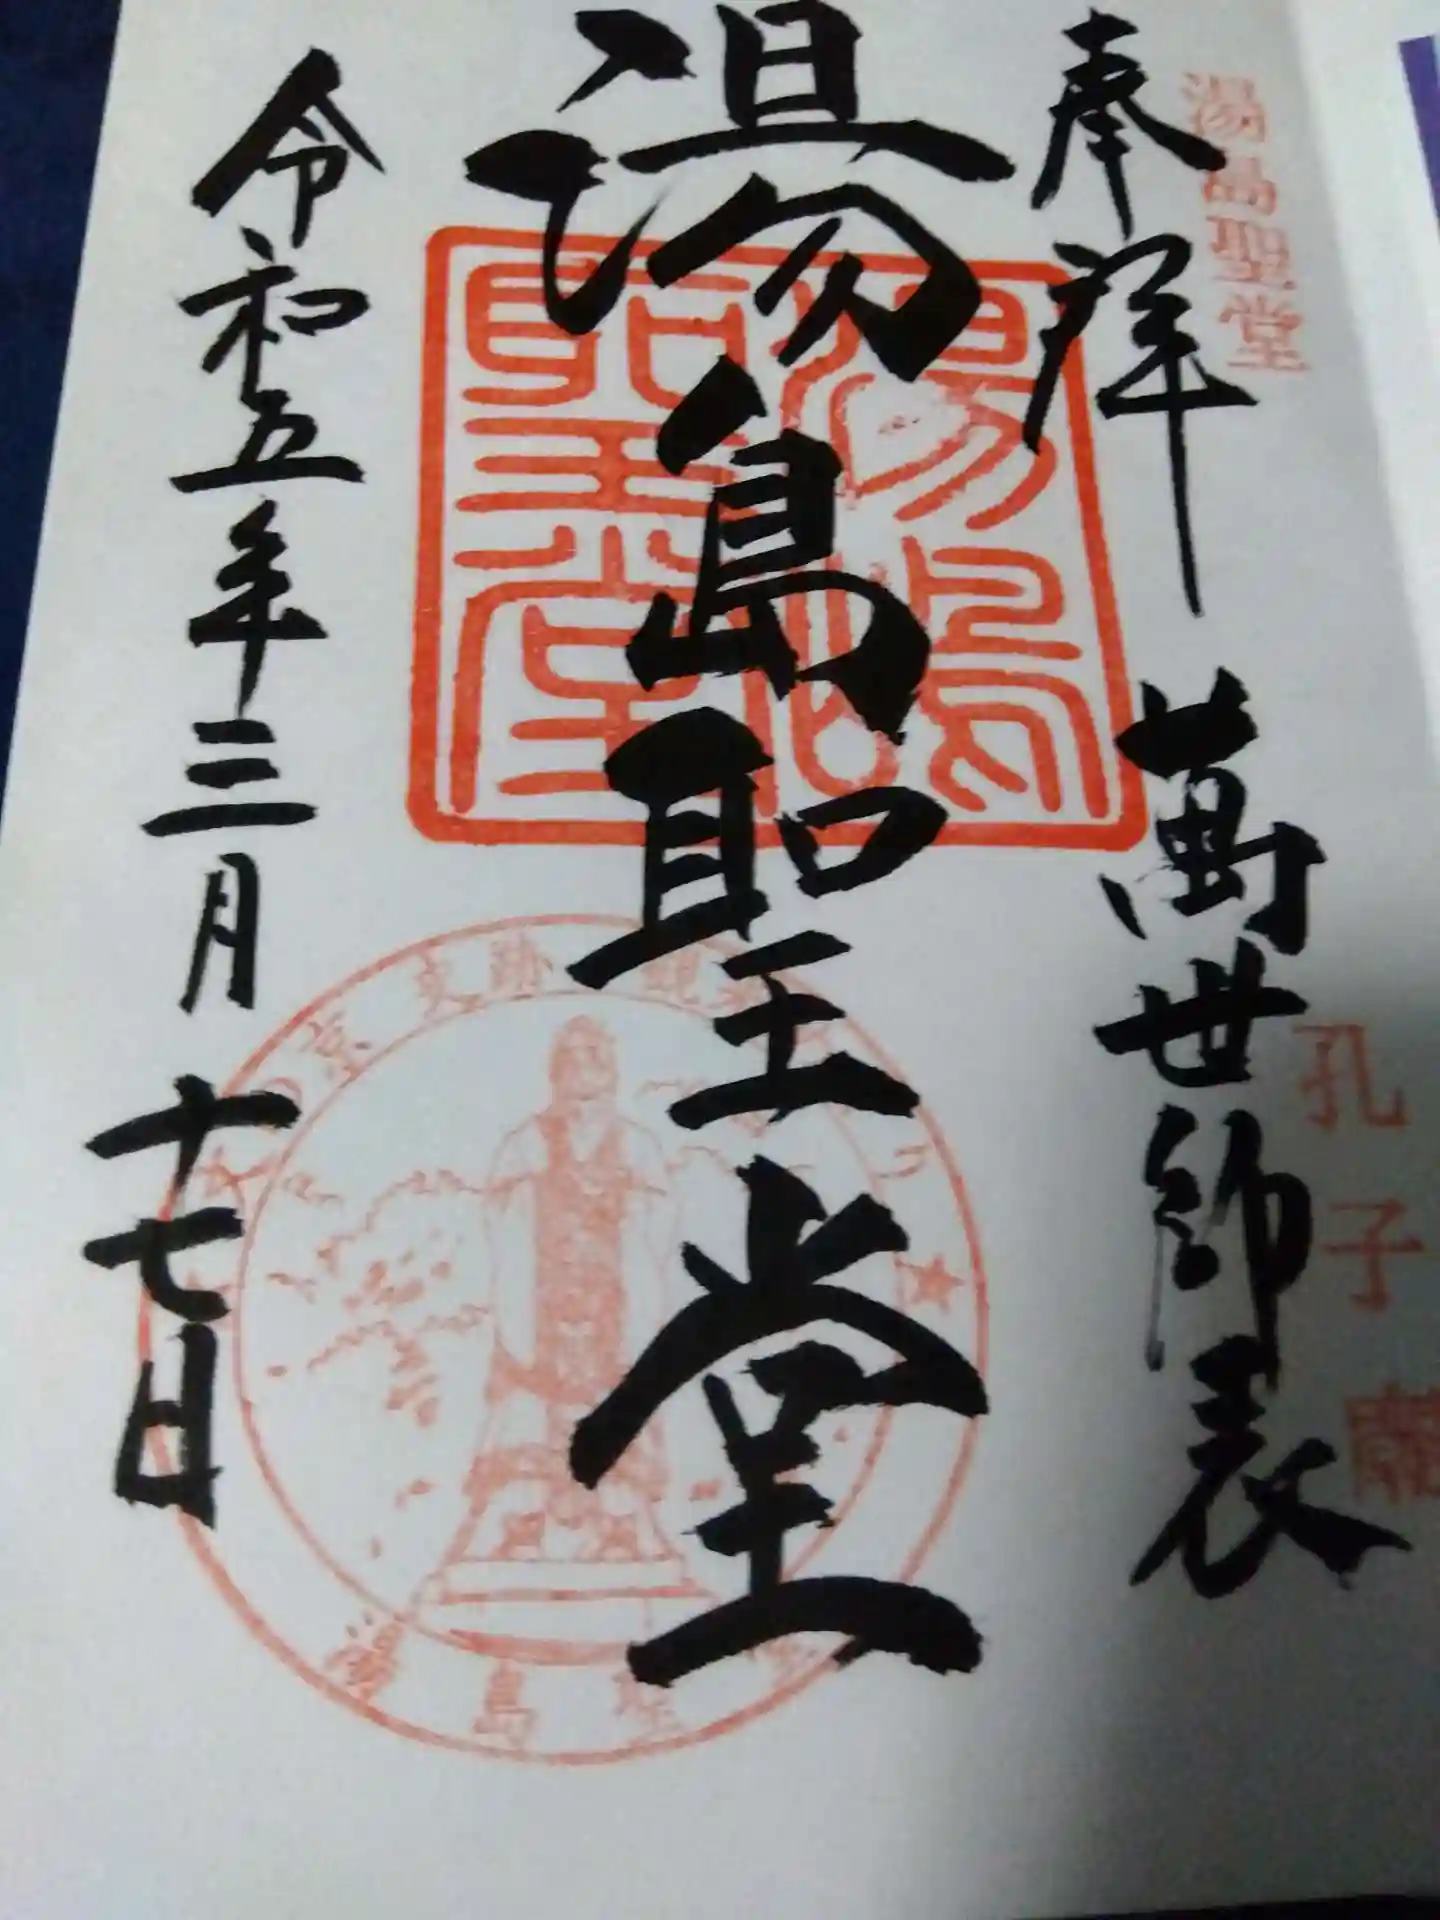 湯島聖堂
奉拝
萬世師表
孔子廟
湯島聖堂
湯島聖堂
令和五年三月十七日
京 史跡
島聖